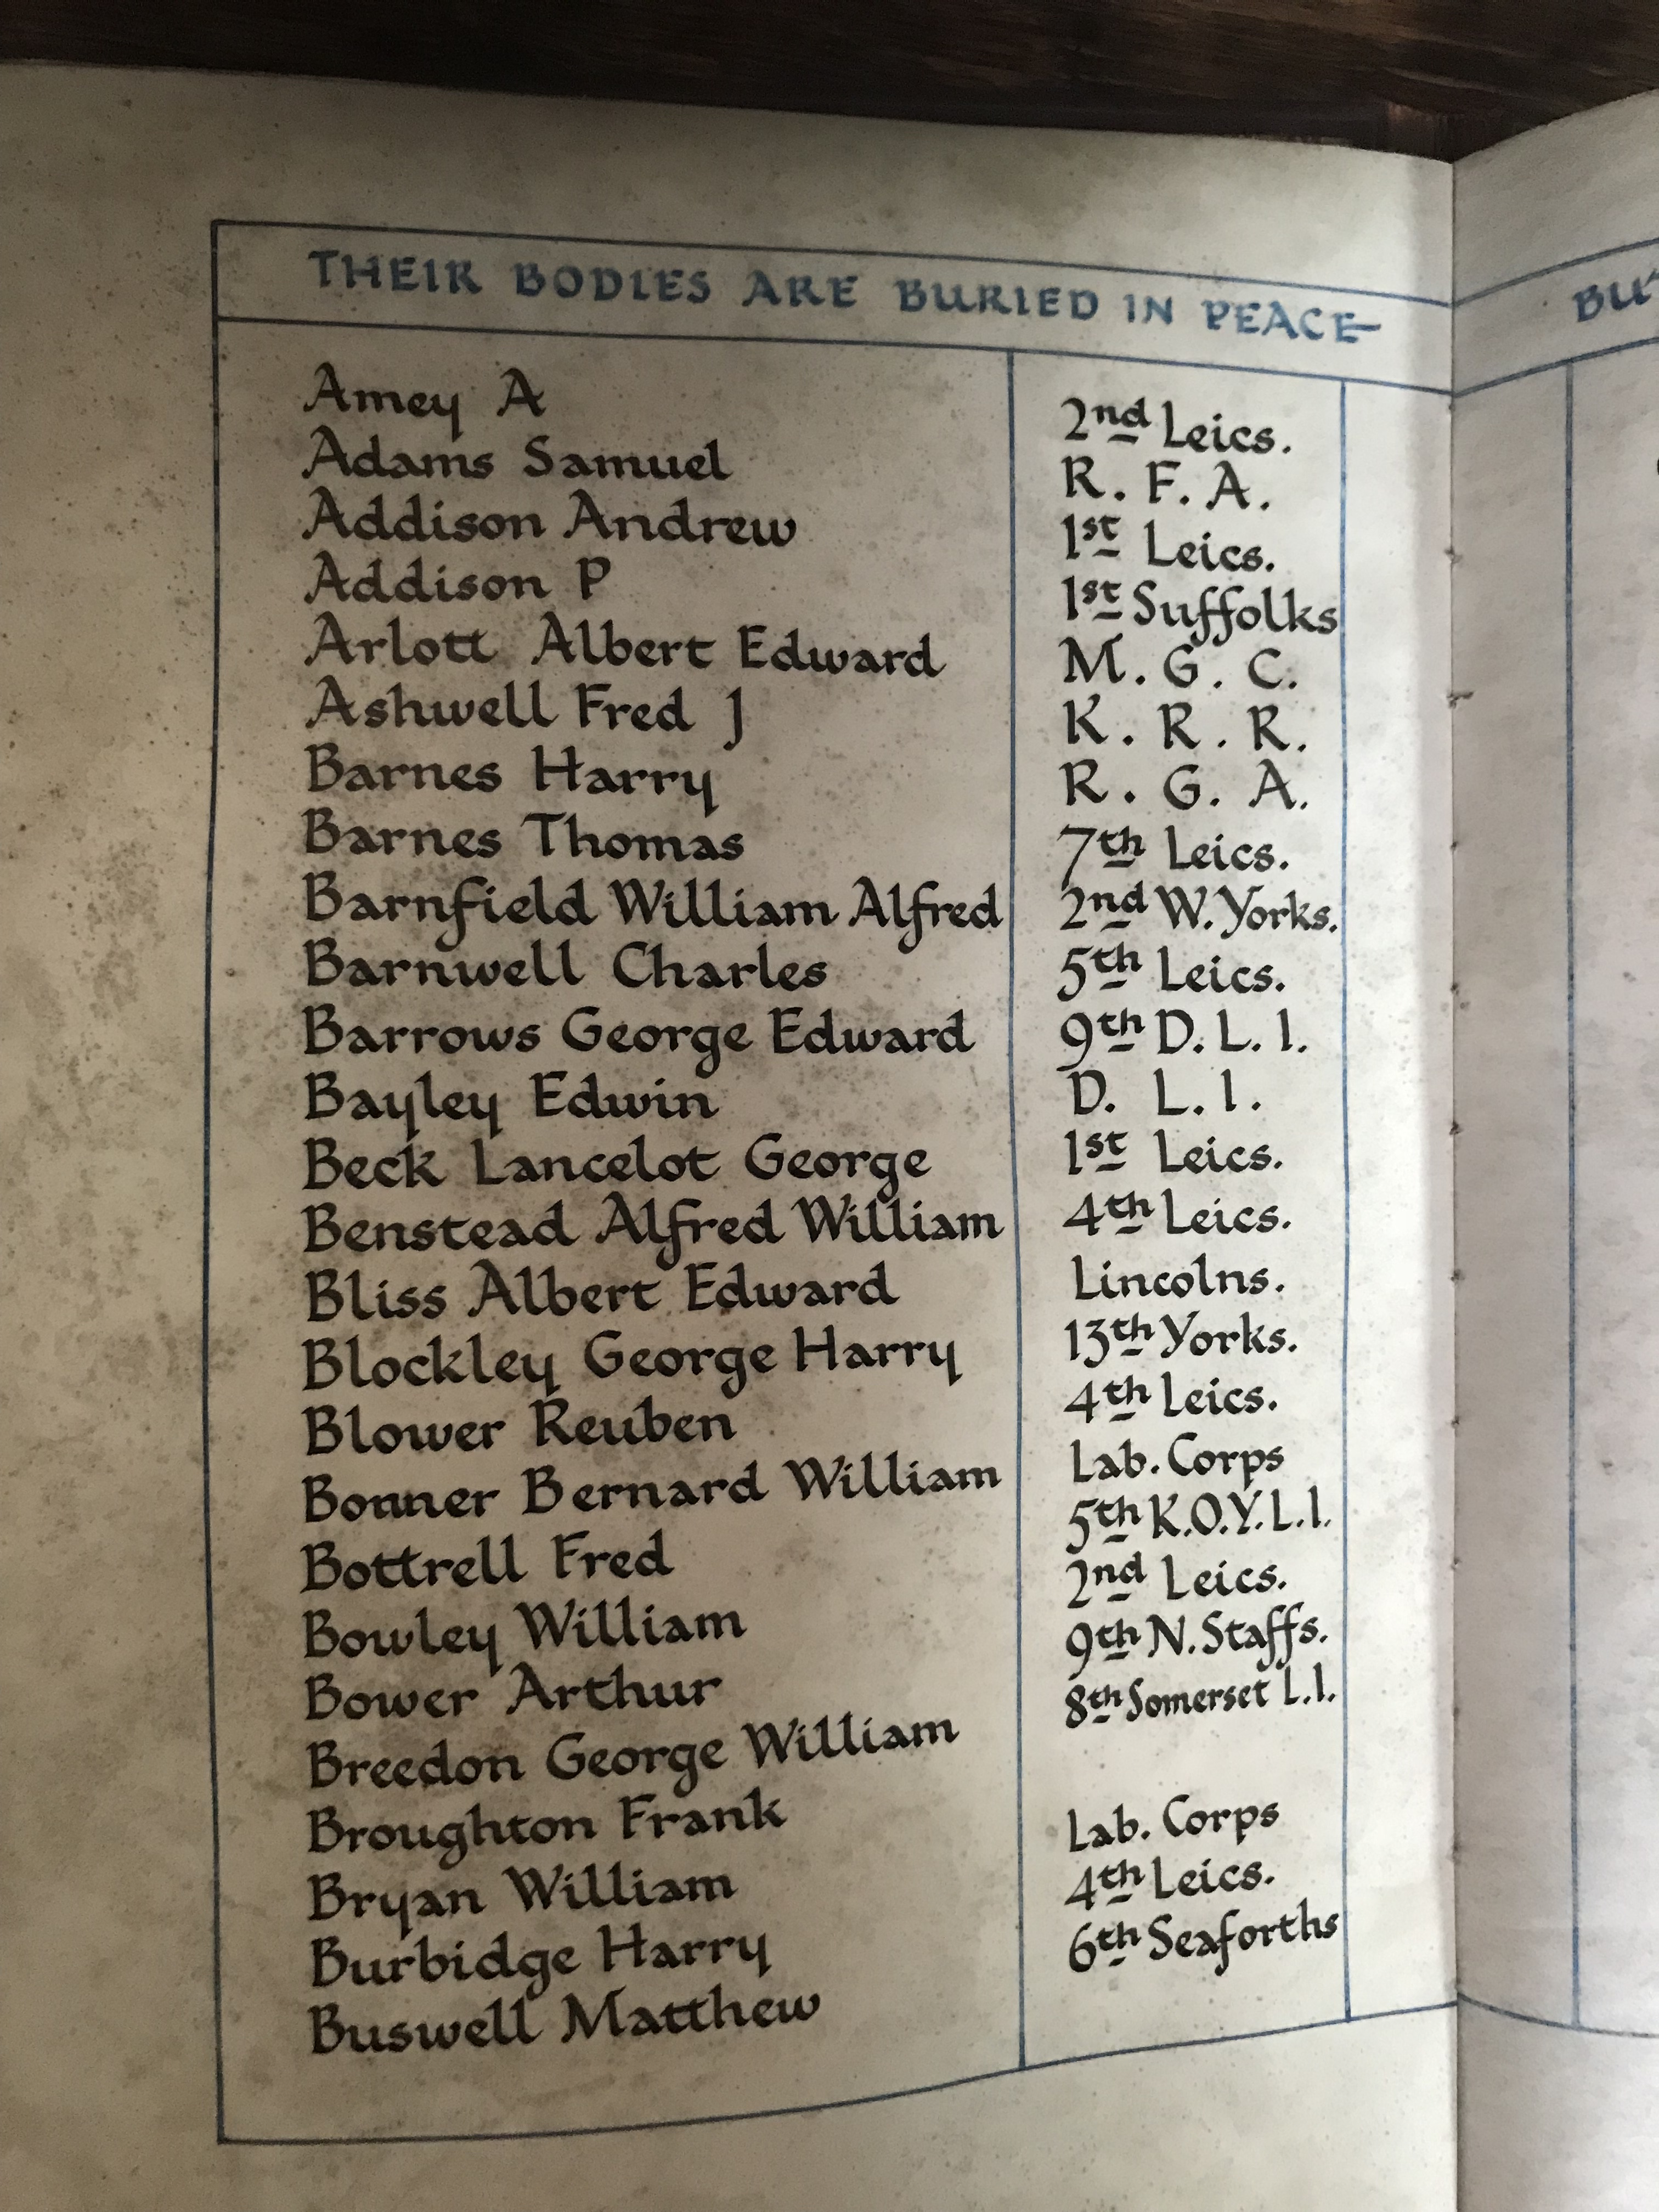 THEIR BODIES ARE BURIED IN PEACE—
Amey A 2nd Leics.
Adams Samuel R. F. A.
Addison Andrew 1st Leics.
Addison P 1st Suffolks
Arlott Albert Edward M. G. C.
Ashwell Fred J K. R. R.
Barnes Harry R. G. A.
Barnes Thomas 7th Leics.
Barnfield William Alfred 2nd W. Yorks.
Barnwell Charles 5th Leics.
Barrows George Edward 9th D. L. I.
Bayley Edwin D. L. I.
Beck Lancelot George 1st Leics.
Benstead Alfred William 4th Leics.
Bliss Albert Edward Lincolns.
Blockley George Harry 13th Yorks.
Blower Reuben 4th Leics.
Bonner Bernard William Lab. Corps
Bottrell Fred 5th K.O.Y.L.I.
Bowley William 2nd Leics.
Bower Arthur 9th N. Staffs.
Breedon George William 8th Somerset L.I.
Broughton Frank
Bryan William Lab. Corps
Burbidge Harry 4th Leics.
Buswell Matthew 6th Seaforths
BUT